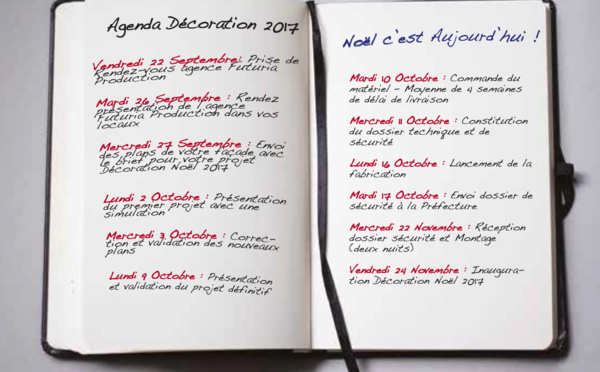 Agenda Décoration 2017
Vendredi 22 Septembre: Prise de
Rendez-vous agence Futuria
Production
Mardi 26 Septembre : Rendez
présentation de l'agence
Futuria Production dans vos
locaux
Mercredi 27 Septembre : Envoi
des plans de votre façade avec
le brief pour votre projet
Décoration Noël 2017
Lundi 2 Octobre : Présentation
du premier projet avec une
simulation
Mercredi 3 Octobre : Correc-
tion et validation des nouveaux
plans
Lundi 9 Octobre : Présentation
et validation du projet définitif
Noël c'est Aujourd'hui !
Mardi 10 Octobre : Commande du
matériel - Moyenne de 4 semaines
de délai de livraison
Mercredi 11 Octobre : Constitution
du dossier technique et de
sécurité
Lundi 16 Octobre : Lancement de la
fabrication
Mardi 17 Octobre : Envoi dossier de
sécurité à la Préfecture
Mercredi 22 Novembre : Réception
dossier sécurité et Montage
(deux nuits)
Vendredi 24 Novembre : Inaugura-
tion Décoration Noël 2017